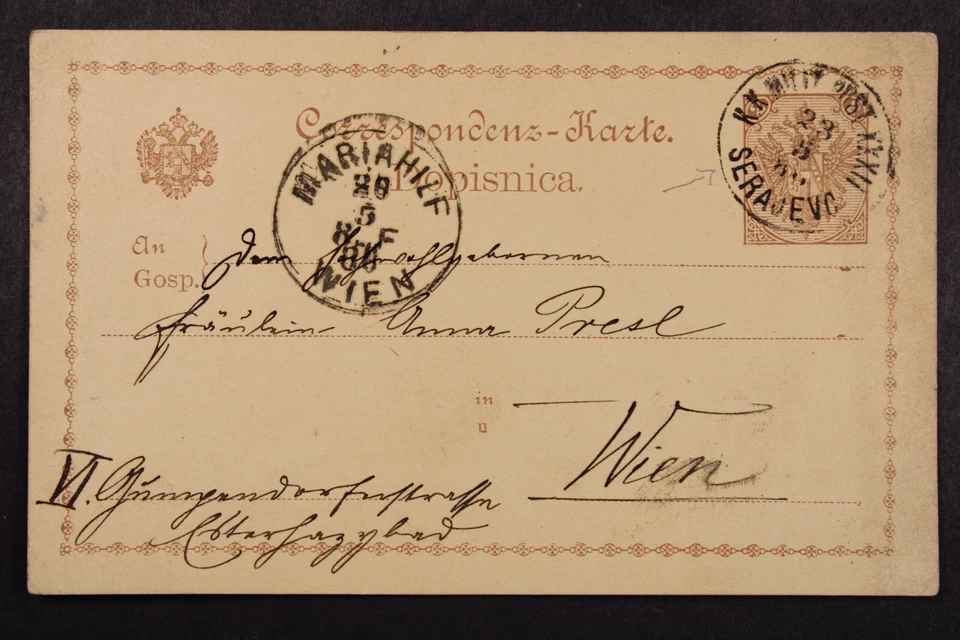 Correspondenz-Karte.
Dopisnica.
K.K. MILIT. POST XXXII
23
5
SERAJEVO
MARIAHILF
26
5
8.F
86
WIEN
An
Gosp.
Dem Hochwohlgebornen
Fräulein Anna Presl
in
u
Wien
VI. Gumpendorferstrasse
Esterhazybad